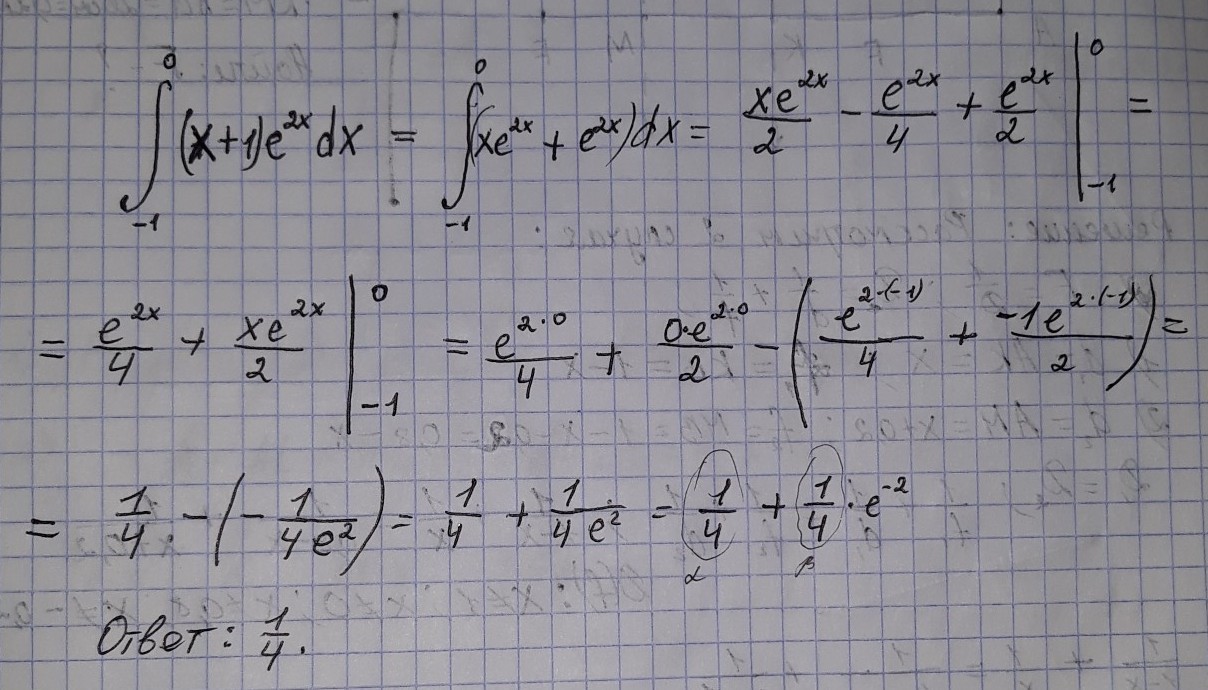 ∫₋₁⁰ (x+1)e^{2x} dx = ∫₋₁⁰ (xe^{2x} + e^{2x})dx = xe^{2x}/2 − e^{2x}/4 + e^{2x}/2 |₋₁⁰ =
= e^{2x}/4 + xe^{2x}/2 |₋₁⁰ = e^{2·0}/4 + 0·e^{2·0}/2 − (e^{2·(−1)}/4 + −1e^{2·(−1)}/2) =
= 1/4 − (− 1/4e²) = 1/4 + 1/4e² = 1/4 + 1/4 · e^{−2}
α β
Ответ: 1/4.